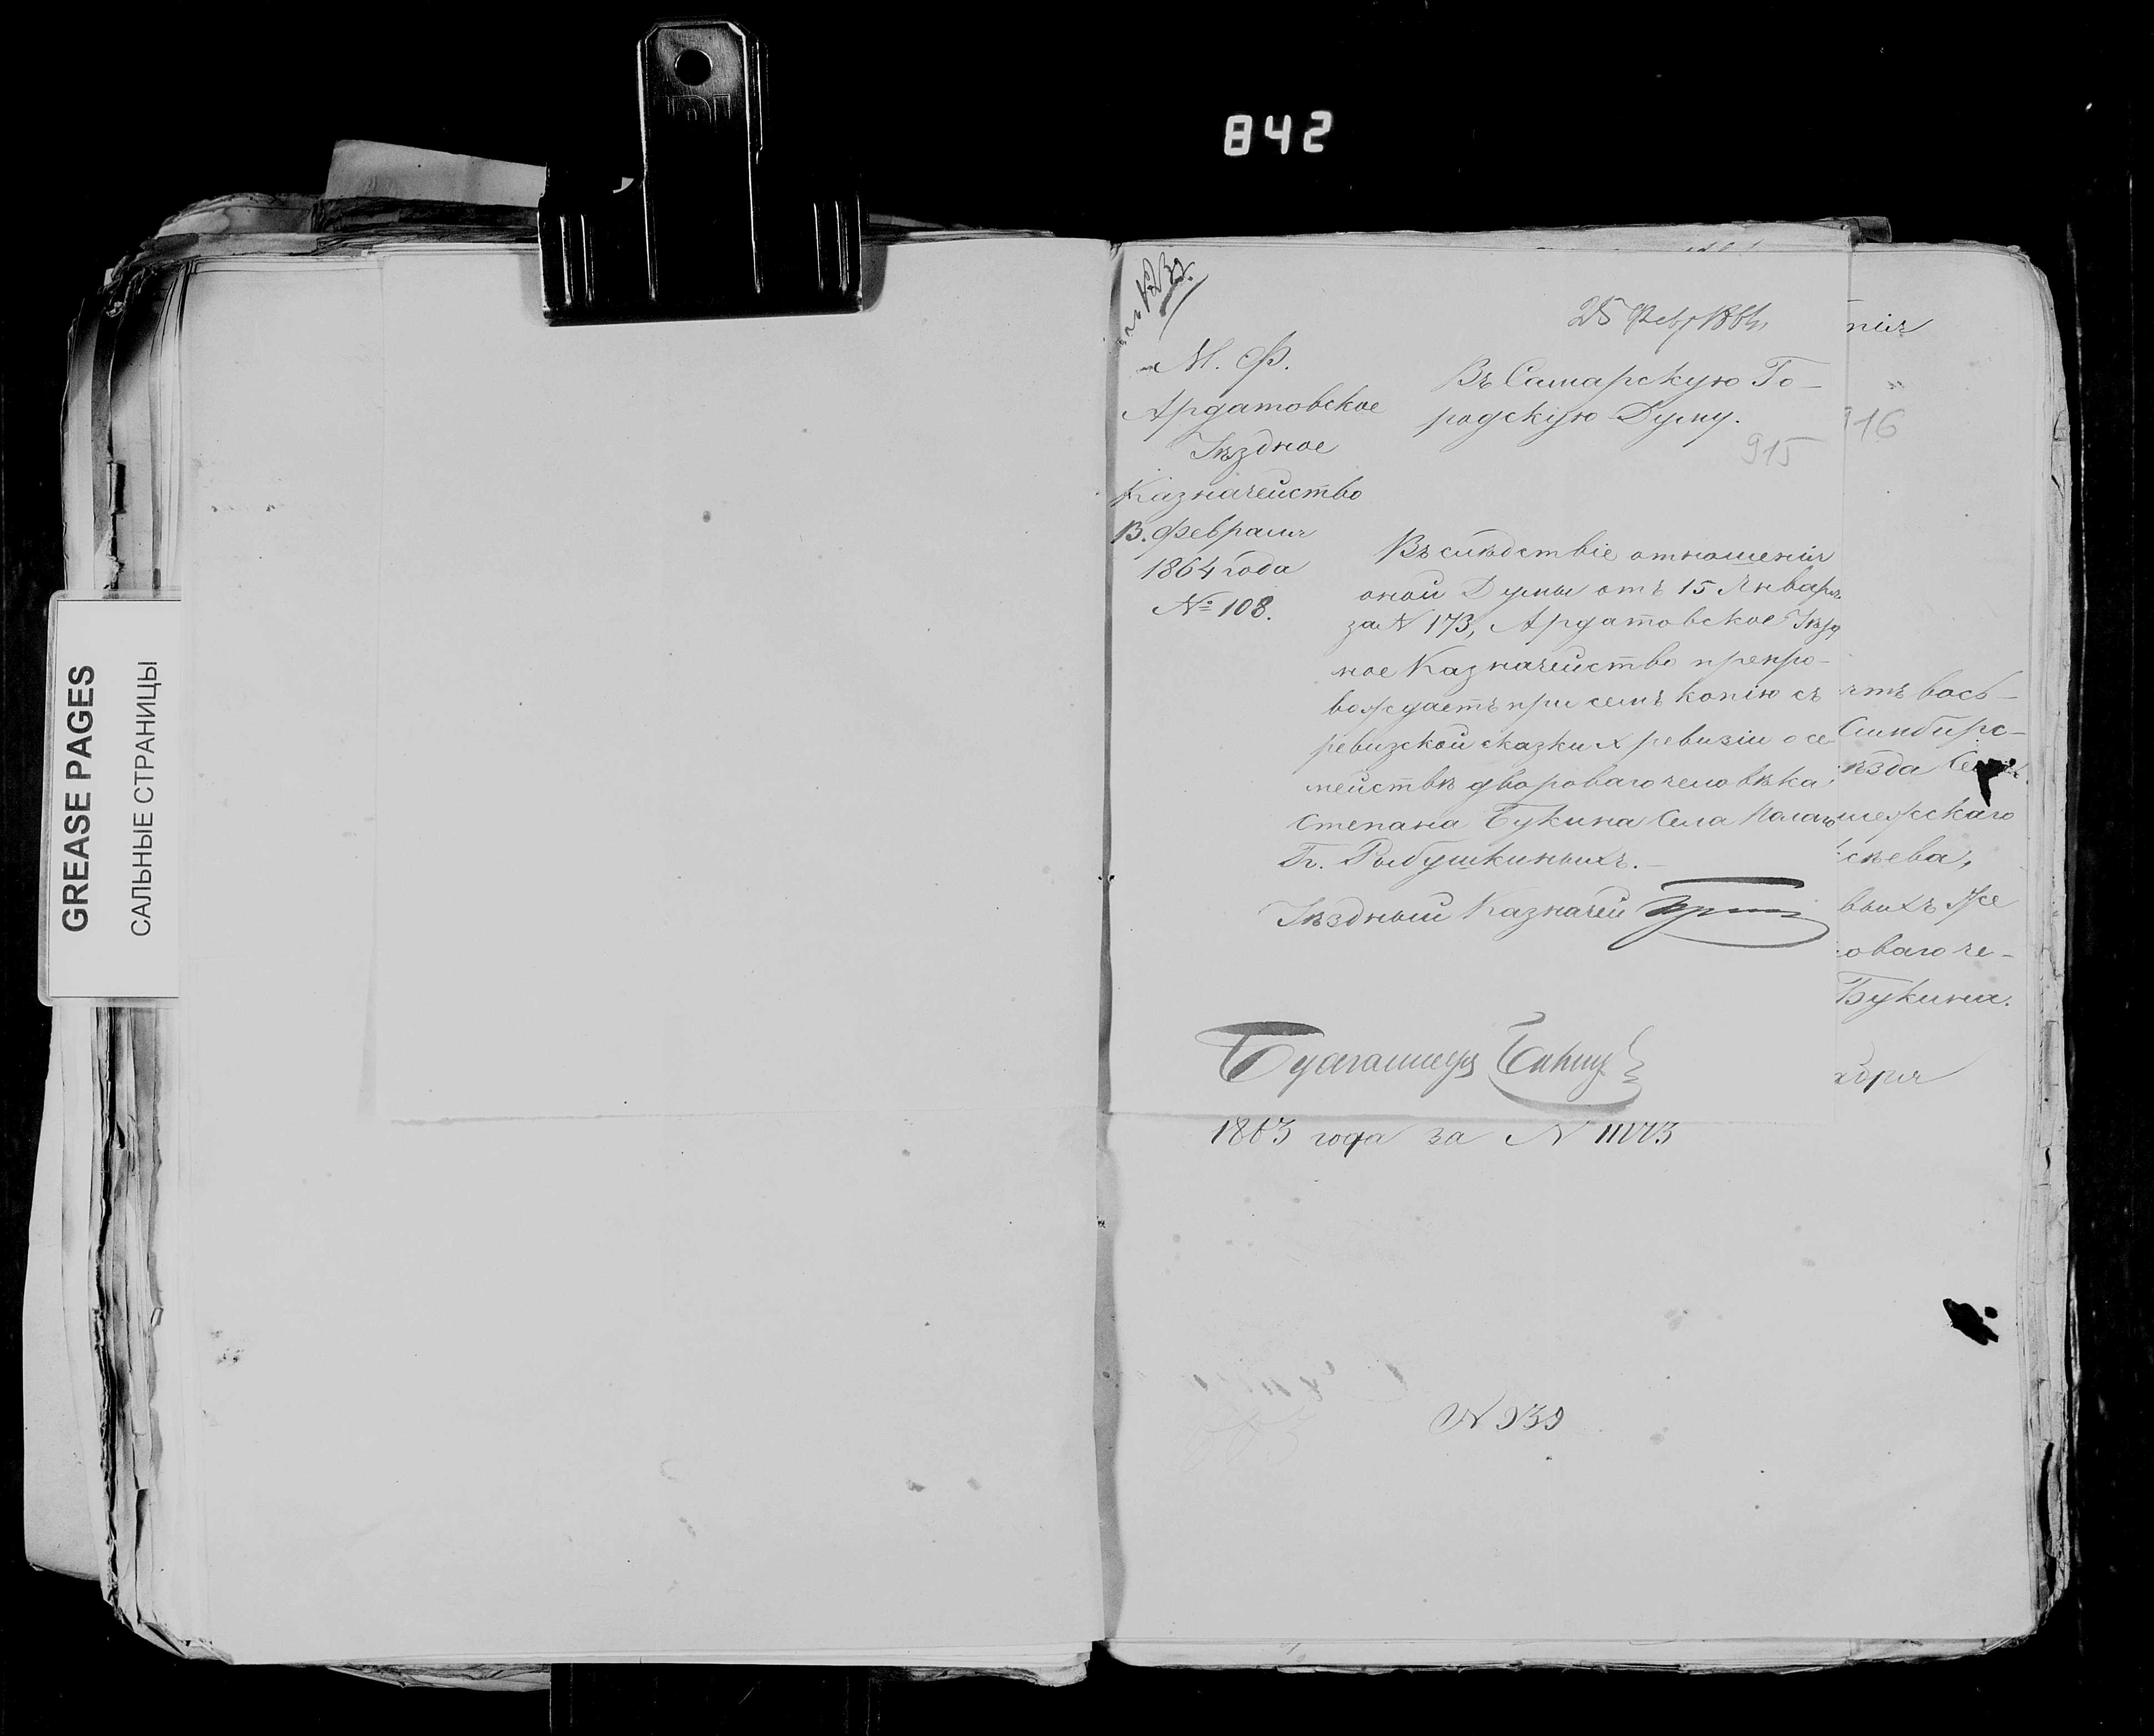 842
GREASE PAGES
САЛЬНЫЕ СТРАНИЦЫ
25 Февр 1864
М. Ф.
Ардатовское
Уѣздное
Казначейство
13. февраля
1864 года
№ 108.
Въ Самарскую Го-
родскую Думу.
915
Въ слѣдствіе отношенія
оной Думы отъ 15 Января
за N 173, Ардатовское Уѣзд
ное Казначейство препро-
вождаетъ при семъ копію съ
ревизской сказки X ревизіи о се
мействѣ двороваго человѣка
Степана Букина Села
Гг. Рыбушкиныхъ.
Уѣздный Казначей
Бухгалтеръ
1863 года за N
N 939
нія
916
ятъ вось-
Симбирс-
ѣзда
скаго
ѣева,
выхъ же
оваго че-
Букина.
бря